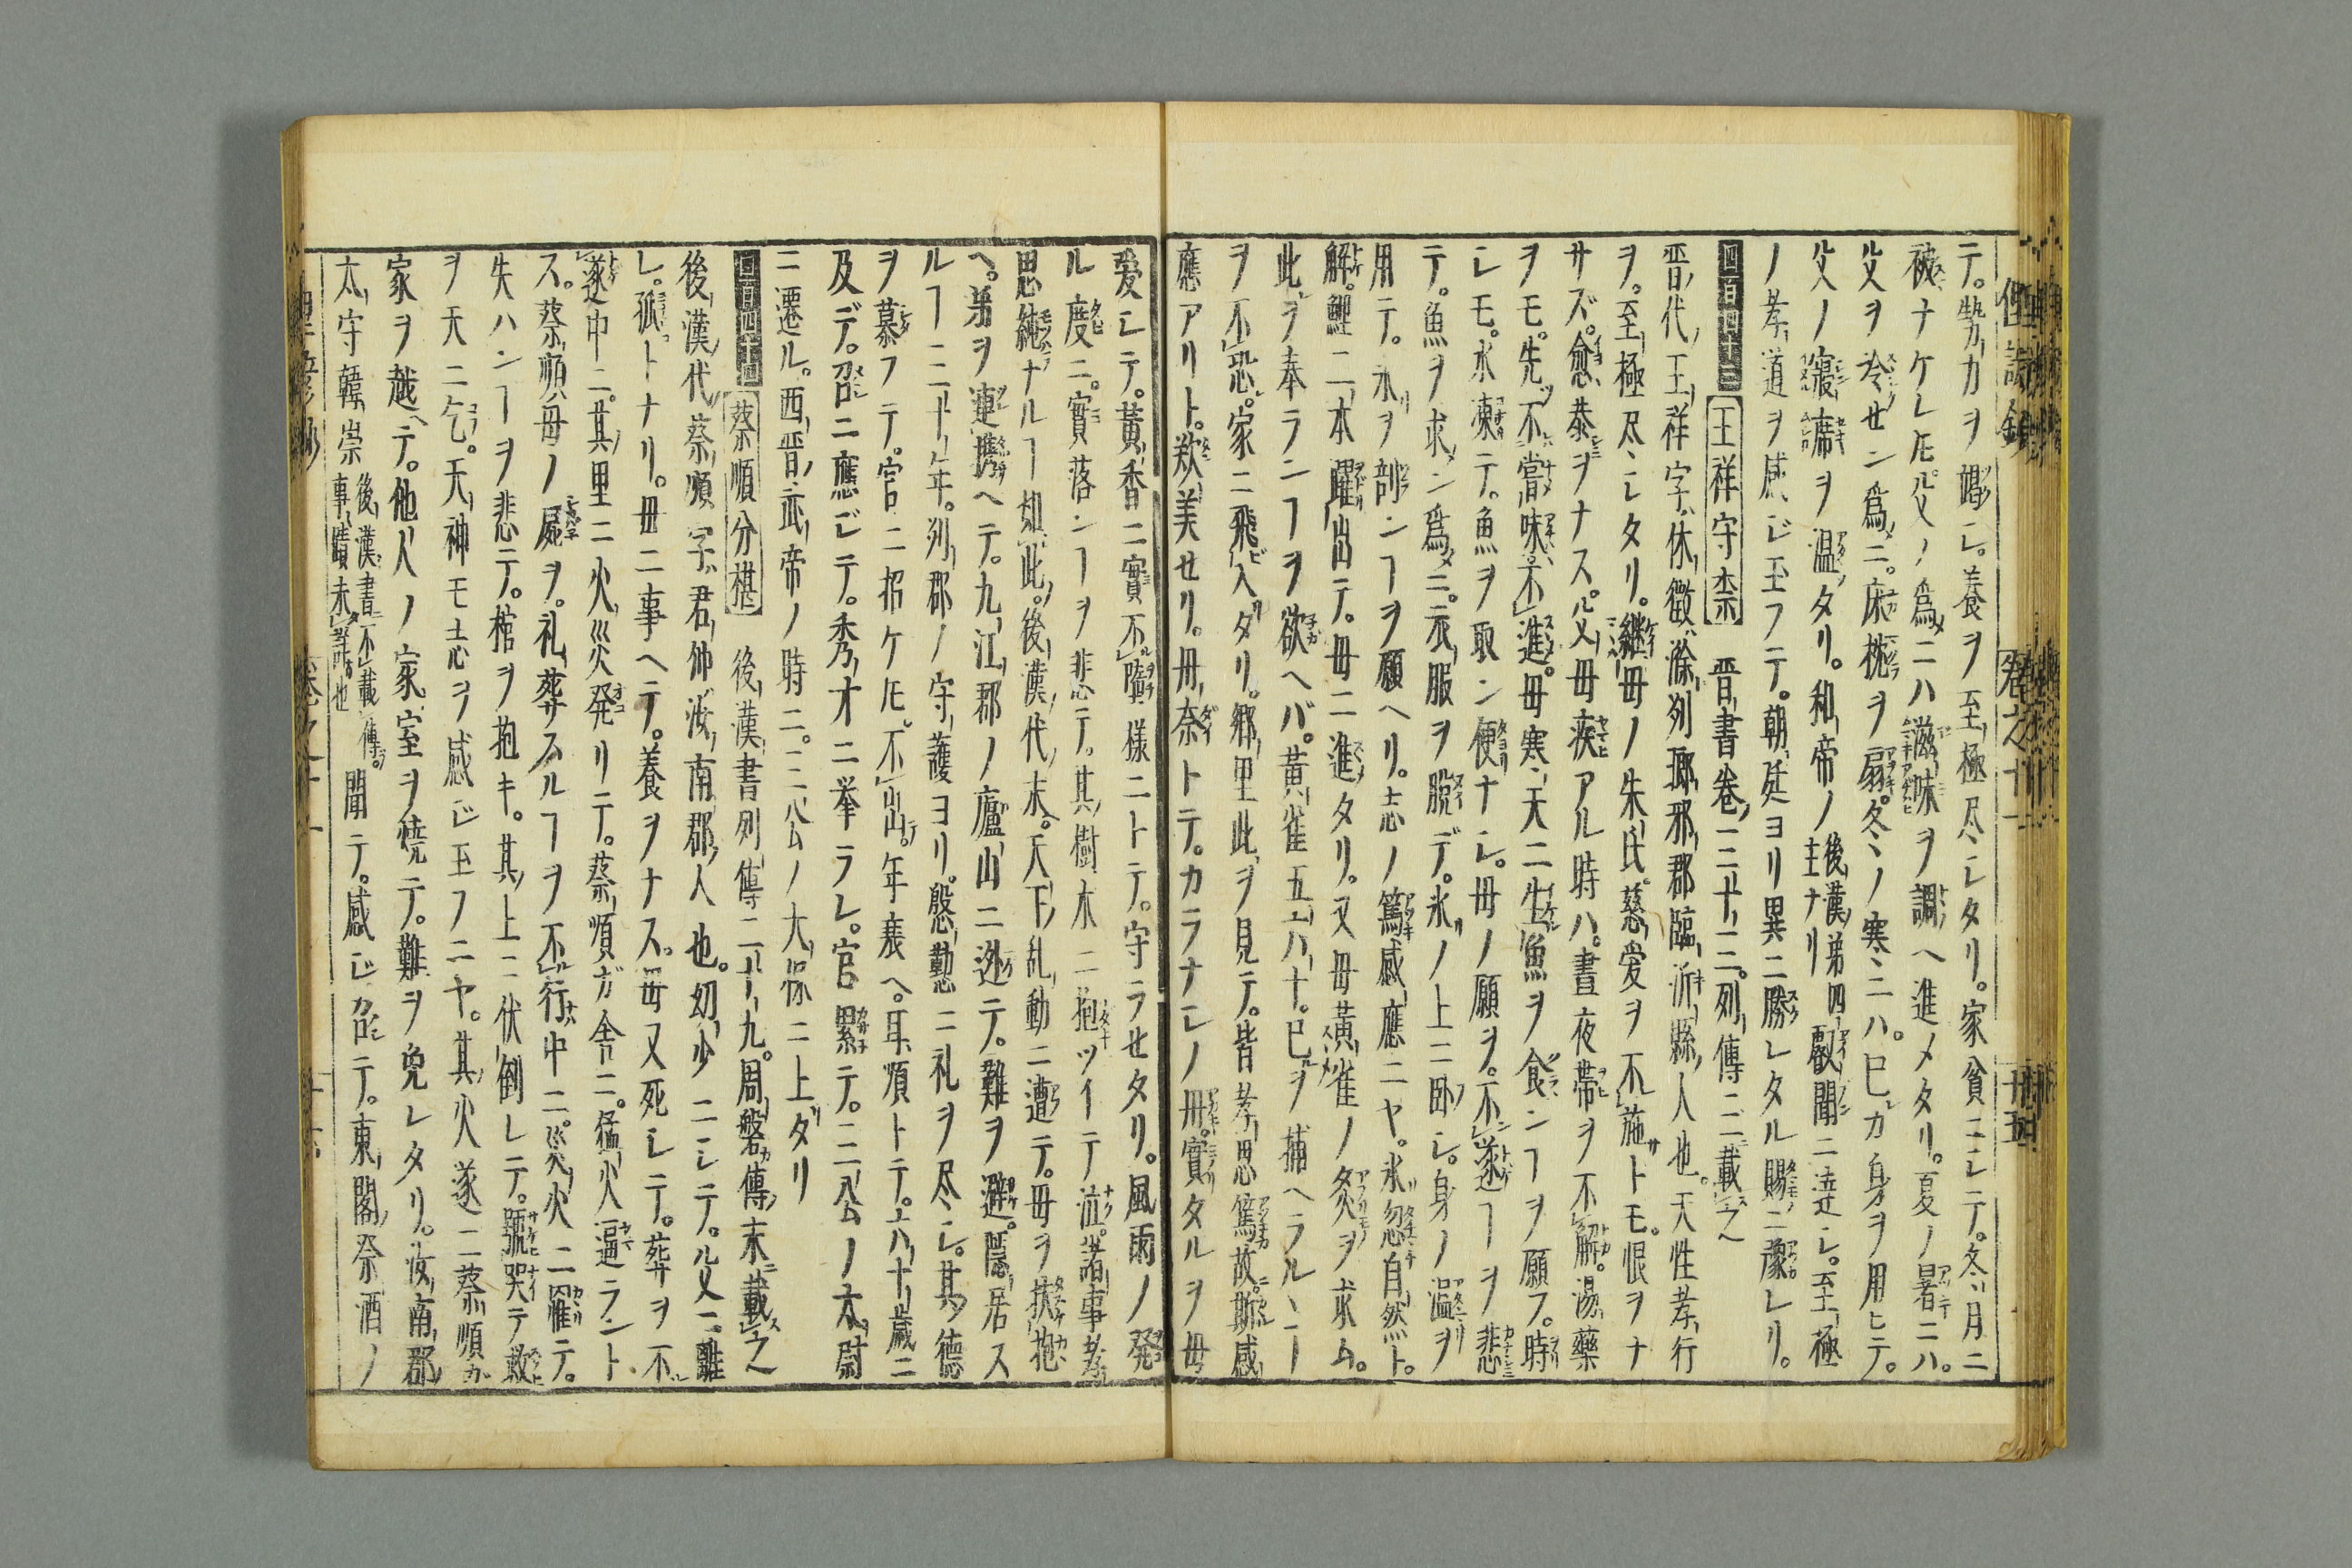 俚諺鈔 卷之十一 十五
テ。勢力ヲ竭シ。養ヲ至極尽シタリ。家貧ニシテ。冬月ニ
被ナケレ𪜈。父ノ爲ニハ滋味ヲ調ヘ進メタリ。夏ノ暑ニハ。
父ヲ冷セン爲ニ。床枕ヲ扇。冬ノ寒ニハ。已カ身ヲ用ヒテ。
父ノ寢席ヲ温タリ。和帝ノ後漢第四主ナリ叡聞ニ達シ。至極
ノ孝道ヲ感ジ玉フテ。朝廷ヨリ異ニ勝レタル賜ニ豫レリ。
四百四十三 王祥守柰 晋書卷三十三。列傳ニ載之
晋代王祥字休徴滁列瑯邪郡臨沂縣人也。天性孝行
ヲ。至極尽シタリ。繼母ノ朱氏慈愛ヲ不施トモ。恨ヲナ
サズ。愈恭ヲナス。父母疾アル時ハ。晝夜帶ヲ不解。湯藥
ヲモ。先不嘗味不進。母寒天ニ生魚ヲ食ンヿヲ願フ。時
シモ。水凍テ。魚ヲ取ン便ナシ。母ノ願ヲ。不遂ヿヲ悲
テ。魚ヲ求ン爲ニ。衣服ヲ脱デ。氷ノ上ニ卧シ。身ノ温ヲ
用テ。氷ヲ剖ンヿヲ願ヘリ。志ノ篤感應ニヤ。氷忽自然ト。
解。鯉二本躍出テ。母ニ進タリ。又母黄雀ノ炙ヲ求ム。
此ヲ奉ランヿヲ欲ヘバ。黄雀五六十。已ヲ捕ヘラルヽヿ
ヲ不恐。家ニ飛入タリ。郷里此ヲ見テ。皆孝思篤故。斯感
應アリト。歎美セリ。丹奈トテ。カラナシノ丹實タルヲ母
愛シテ。黄香ニ實不隕樣ニトテ。守ラセタリ。風雨ノ発
ル度ニ。實落ンヿヲ悲テ。其樹木ニ抱ツイテ泣。諸事孝
思純ナルヿ如此。後漢代末。天下乱動ニ遭テ。母ヲ扶抱
ヘ。弟ヲ連携ヘテ。九江郡ノ廬山ニ逊テ。難ヲ避。隱居ス
ルヿ三十年。列郡ノ守護ヨリ。慇懃ニ礼ヲ尽シ。其德
ヲ慕フテ。官ニ招ケ𪜈。不出。年衰ヘ。耳順トテ。六十歳ニ
及デ。召ニ應ジテ。秀才ニ挙ラレ。官累テ。三公ノ太尉
ニ遷ル。西晋武帝ノ時ニ。三公ノ大保ニ上ダリ
四百四十四 蔡順分椹 後漢書列傳二十九。周磐傳末載之
後漢代蔡順字君仲汝南郡人也。幼少ニシテ。父ニ離
レ。孤トナリ。母ニ事ヘテ。養ヲナス。母又死シテ。葬ヲ不
遂中ニ。其里ニ火災発リテ。蔡順ガ舎ニ。猛火逼ラント
ス。蔡順母ノ屍ヲ。礼葬スルヿヲ不行中ニ。災火ニ罹テ。
失ハンヿヲ悲テ。棺ヲ抱キ。其上ニ伏倒レテ。號哭テ救
ヲ天ニ乞。天神モ志ヲ感ジ玉フニヤ。其火遂ニ蔡順カ
家ヲ越テ。他人ノ家室ヲ焼テ。難ヲ免レタリ。汝南郡
太守韓崇後漢書不載傳。事蹟未詳也聞テ。感ジ召テ。東閣祭酒ノ